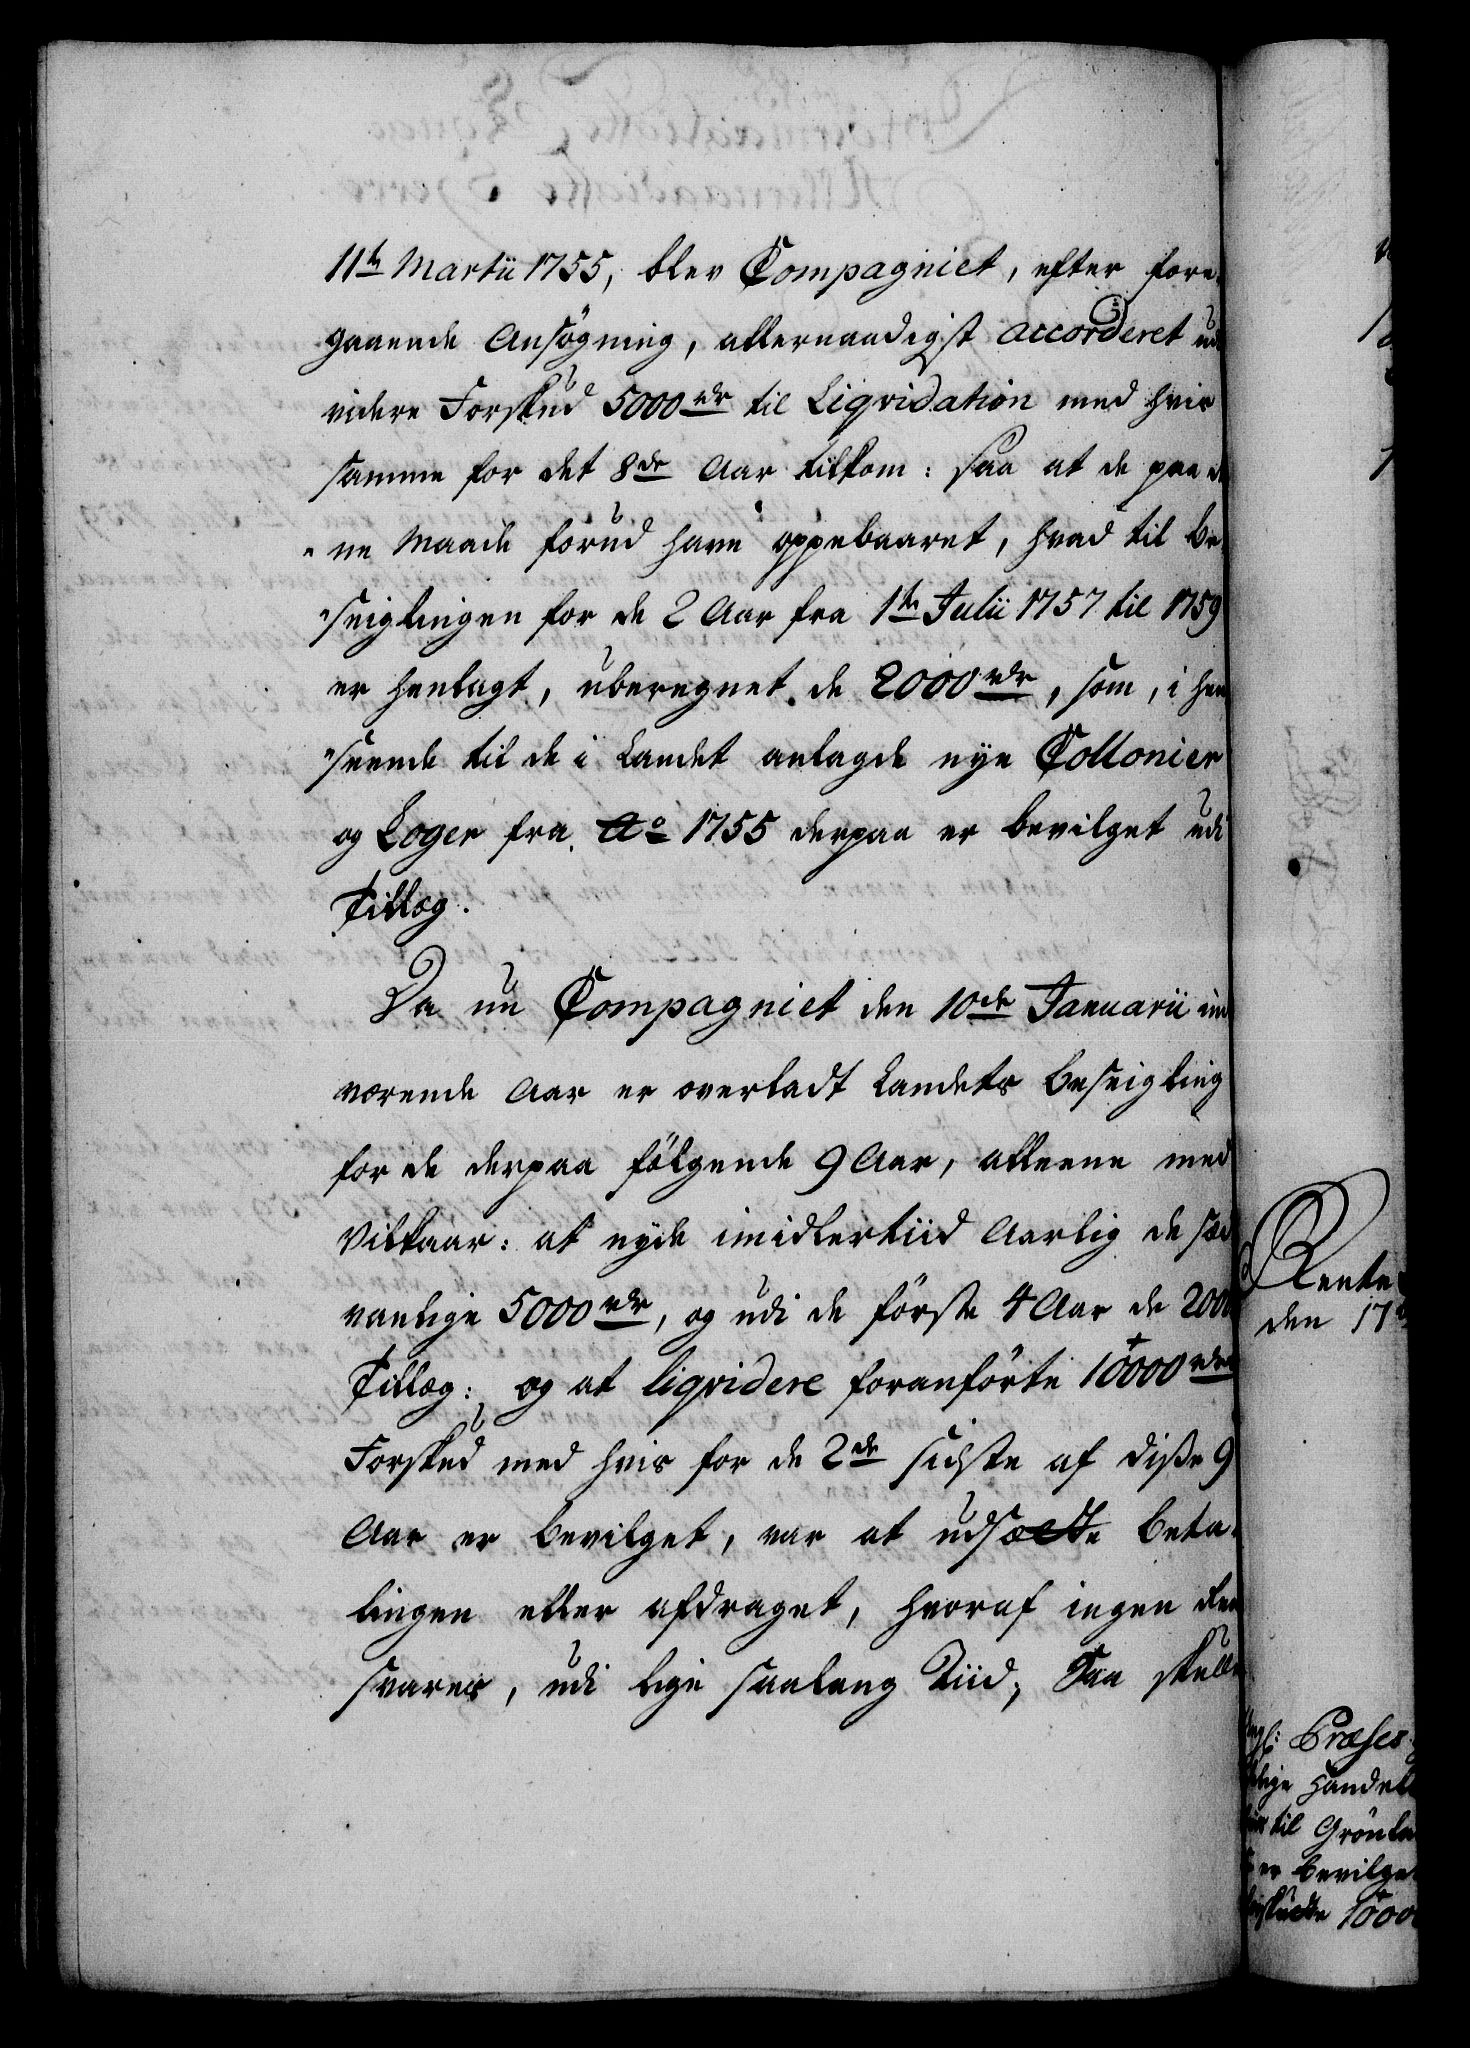 11te Martii 1755, blev Compagniet, efter fore-
gaaende Ansøgning, allernaadigst accorderet ud
videre Forskud 5000 rdr til Liqvidation med hvis
samme for det 8de Aar tilkom: saa at de paa de
ne Maade forud have oppebaaret, hvad til Be
seiglingen for de 2 Aar fra 1te Julii 1757 til 1759
er henlagt, uberegnet de 2000 rdr, som, i hen
seende til de i Landet anlagde nye Collonier
og Loger fra Ao 1755 derpaa er bevilget udi
Tillæg.
Da nu Compagniet den 10de Januarii in
værende Aar er overladt Landets Beseigling
for de derpaa følgende 9 Aar, alleene med
Vilkaar: at nyde imidlertiid Aarlig de sæd
vanlige 5000 rdr, og udi de første 4 Aar de 2000
Tillæg: og at liqvidere foranførte 10000 rdr
Forskud med hvis for de 2de sidste af disse 9
Aar er bevilget, var at udsætte Beta-
lingen eller afdraget, hvoraf ingen Ren
svares, udi lige saalang Tiid; Saa skulle
Rente
den 17
Præses
Handel
til Grønla
er bevilge
1000